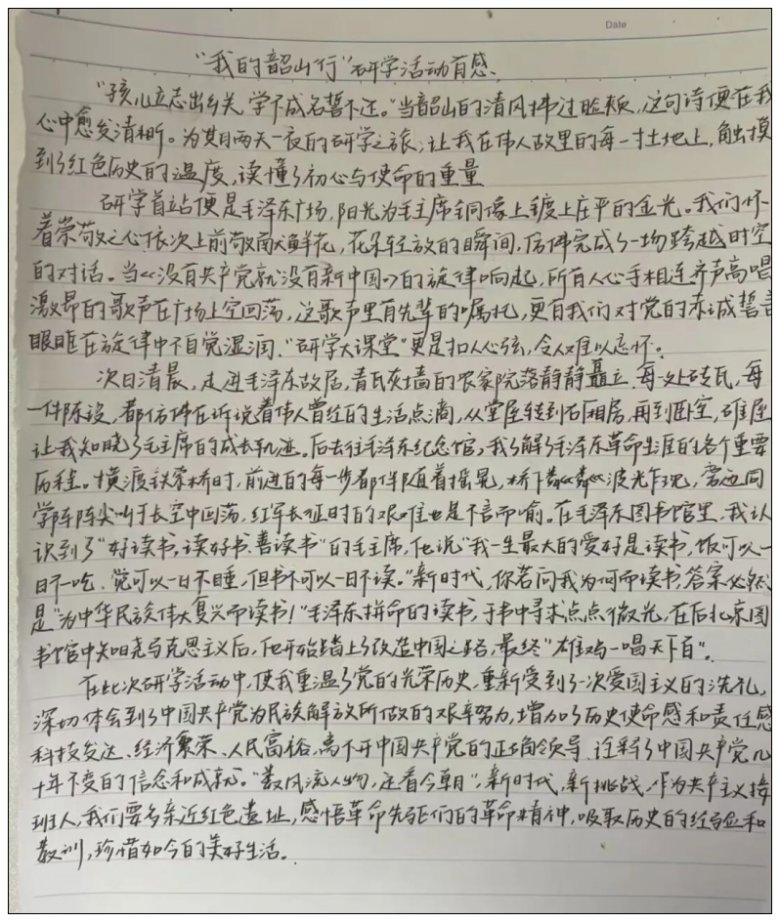 Date
"我的韶山行"研学活动有感
"孩儿立志出乡关,学不成名誓不还。"当韶山的清风拂过脸颊,这句诗便在我
心中愈发清晰。为期两天一夜的研学之旅,让我在伟人故里的每一寸土地上,触摸
到了红色历史的温度,读懂了初心与使命的重量
研学首站便是毛泽东广场,阳光为毛主席铜像上镀上庄严的金光。我们怀
着崇敬之心依次上前敬献鲜花,花朵轻放的瞬间,仿佛完成了一场跨越时空
的对话。当《没有共产党就没有新中国》的旋律响起,所有人心手相连齐声高唱
激昂的歌声在广场上空回荡,这歌声里有先辈的嘱托,更有我们对党的赤诚誓言
眼眶在旋律中不自觉湿润,"研学大课堂"更是扣人心弦,令人难以忘怀。
次日清晨,走进毛泽东故居,青瓦灰墙的农家院落静静矗立,每处砖瓦,每
一件陈设,都仿佛在诉说着伟人曾经的生活点滴,从堂屋转到右厢房,再到卧室,碓屋
让我知晓了毛主席的成长轨迹。后去往毛泽东纪念馆,我了解了毛泽东革命生涯的各个重要
历程。横渡铁索桥时,前进的每一步都伴随着摇晃,桥下粼粼波光乍现,旁边同
学阵阵尖叫于长空中回荡,红军长征时的艰难也是不言而喻。在毛泽东图书馆里,我认
识到了"好读书,读好书,善读书"的毛主席,他说"我一生最大的爱好是读书,饭可以一
日不吃,觉可以一日不睡,但书不可以一日不读。"新时代,你若问我为何而读书,答案必然
是"为中华民族伟大复兴而读书!"毛泽东拼命的读书,于书中寻求点点微光,在后北京图
书馆中知晓马克思主义后,他开始踏上了改造中国之路,最终"雄鸡一唱天下白"。
在此次研学活动中,使我重温了党的光荣历史,重新受到了一次爱国主义的洗礼,
深切体会到了中国共产党为民族解放所做的艰辛努力,增加了历史使命感和责任感
科技发达、经济繁荣、人民富裕,离不开中国共产党的正确领导,诠释了中国共产党几
十年不变的信念和成就。"数风流人物,还看今朝",新时代,新挑战,作为共产主义接
班人,我们要多亲近红色遗址,感悟革命先辈们的革命精神,吸取历史的经验和
教训,珍惜如今的美好生活。